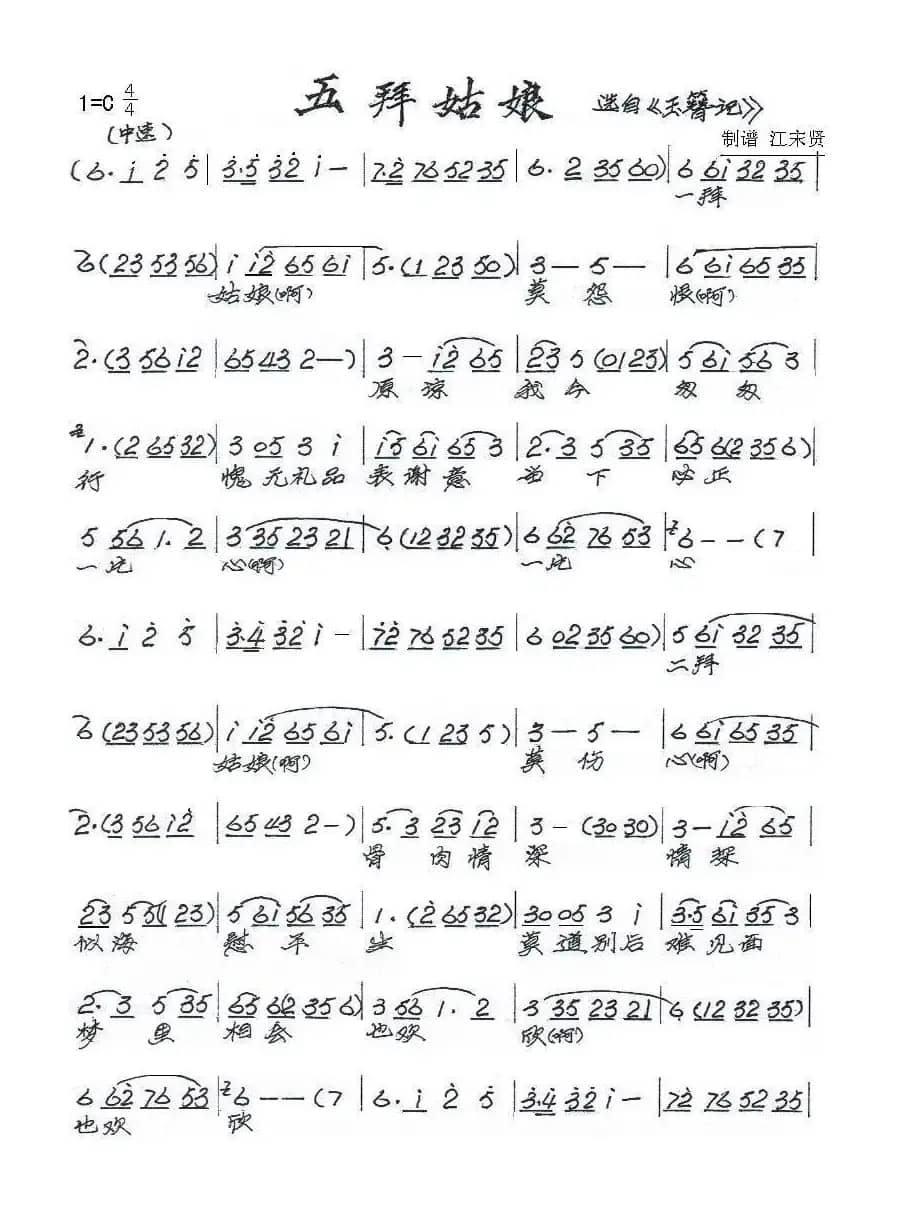 五拜姑娘 选自《玉簪记》
1=C 4/4
(中速)
制谱 江宋贤
(6. i 2 5 | 3.5 32 i - | 7.2 76 52 35 | 6. 2 35 60) | 6 6i 32 35 |
一拜
6 (23 53 56) | i i2 65 6i | 5. (1 23 50) | 3 — 5 — | 6 6i 65 35 |
姑娘(啊) 莫 怨 恨(啊)
2. (3 56 i2 | 65 43 2 —) | 3 — i2 65 | 23 5 (01 23) | 5 6i 56 3 |
原 谅 我今 匆 匆
1. (2 65 32) | 3 05 3 i | i5 6i 65 3 | 2. 3 5 35 | 65 6(2 35 6) |
行 愧无礼品 表谢意 当 下 必正
5 56 1. 2 | 3 35 23 21 | 6 (12 32 35) | 6 62 76 53 | 6 - - (7 |
一片 心(啊) 一片 心
6. i 2 5 | 3.4 32 i - | 72 76 52 35 | 6 02 35 60) | 5 6i 32 35 |
二拜
6 (23 53 56) | i i2 65 6i | 5. (1 23 5) | 3 — 5 — | 6 6i 65 35 |
姑娘(啊) 莫 伤 心(啊)
2. (3 56 i2 | 65 43 2 -) | 5. 3 23 i2 | 3 - (30 30) | 3 — i2 65 |
骨 肉情 深 情 深
23 5 55(1 23) | 5 6i 56 35 | 1. (2 65 32) | 30 05 3 i | 3.5 6i 35 3 |
似海 慰 平 生 莫道别后 难见面
2. 3 5 35 | 65 6(2 35 6) | 3 56 1. 2 | 3 35 23 21 | 6 (12 32 35) |
梦 里 相会 也欢 欣(啊)
6 62 76 53 | 6 - - (7 | 6. i 2 5 | 3.4 32 i - | 72 76 52 35 |
也欢 欣